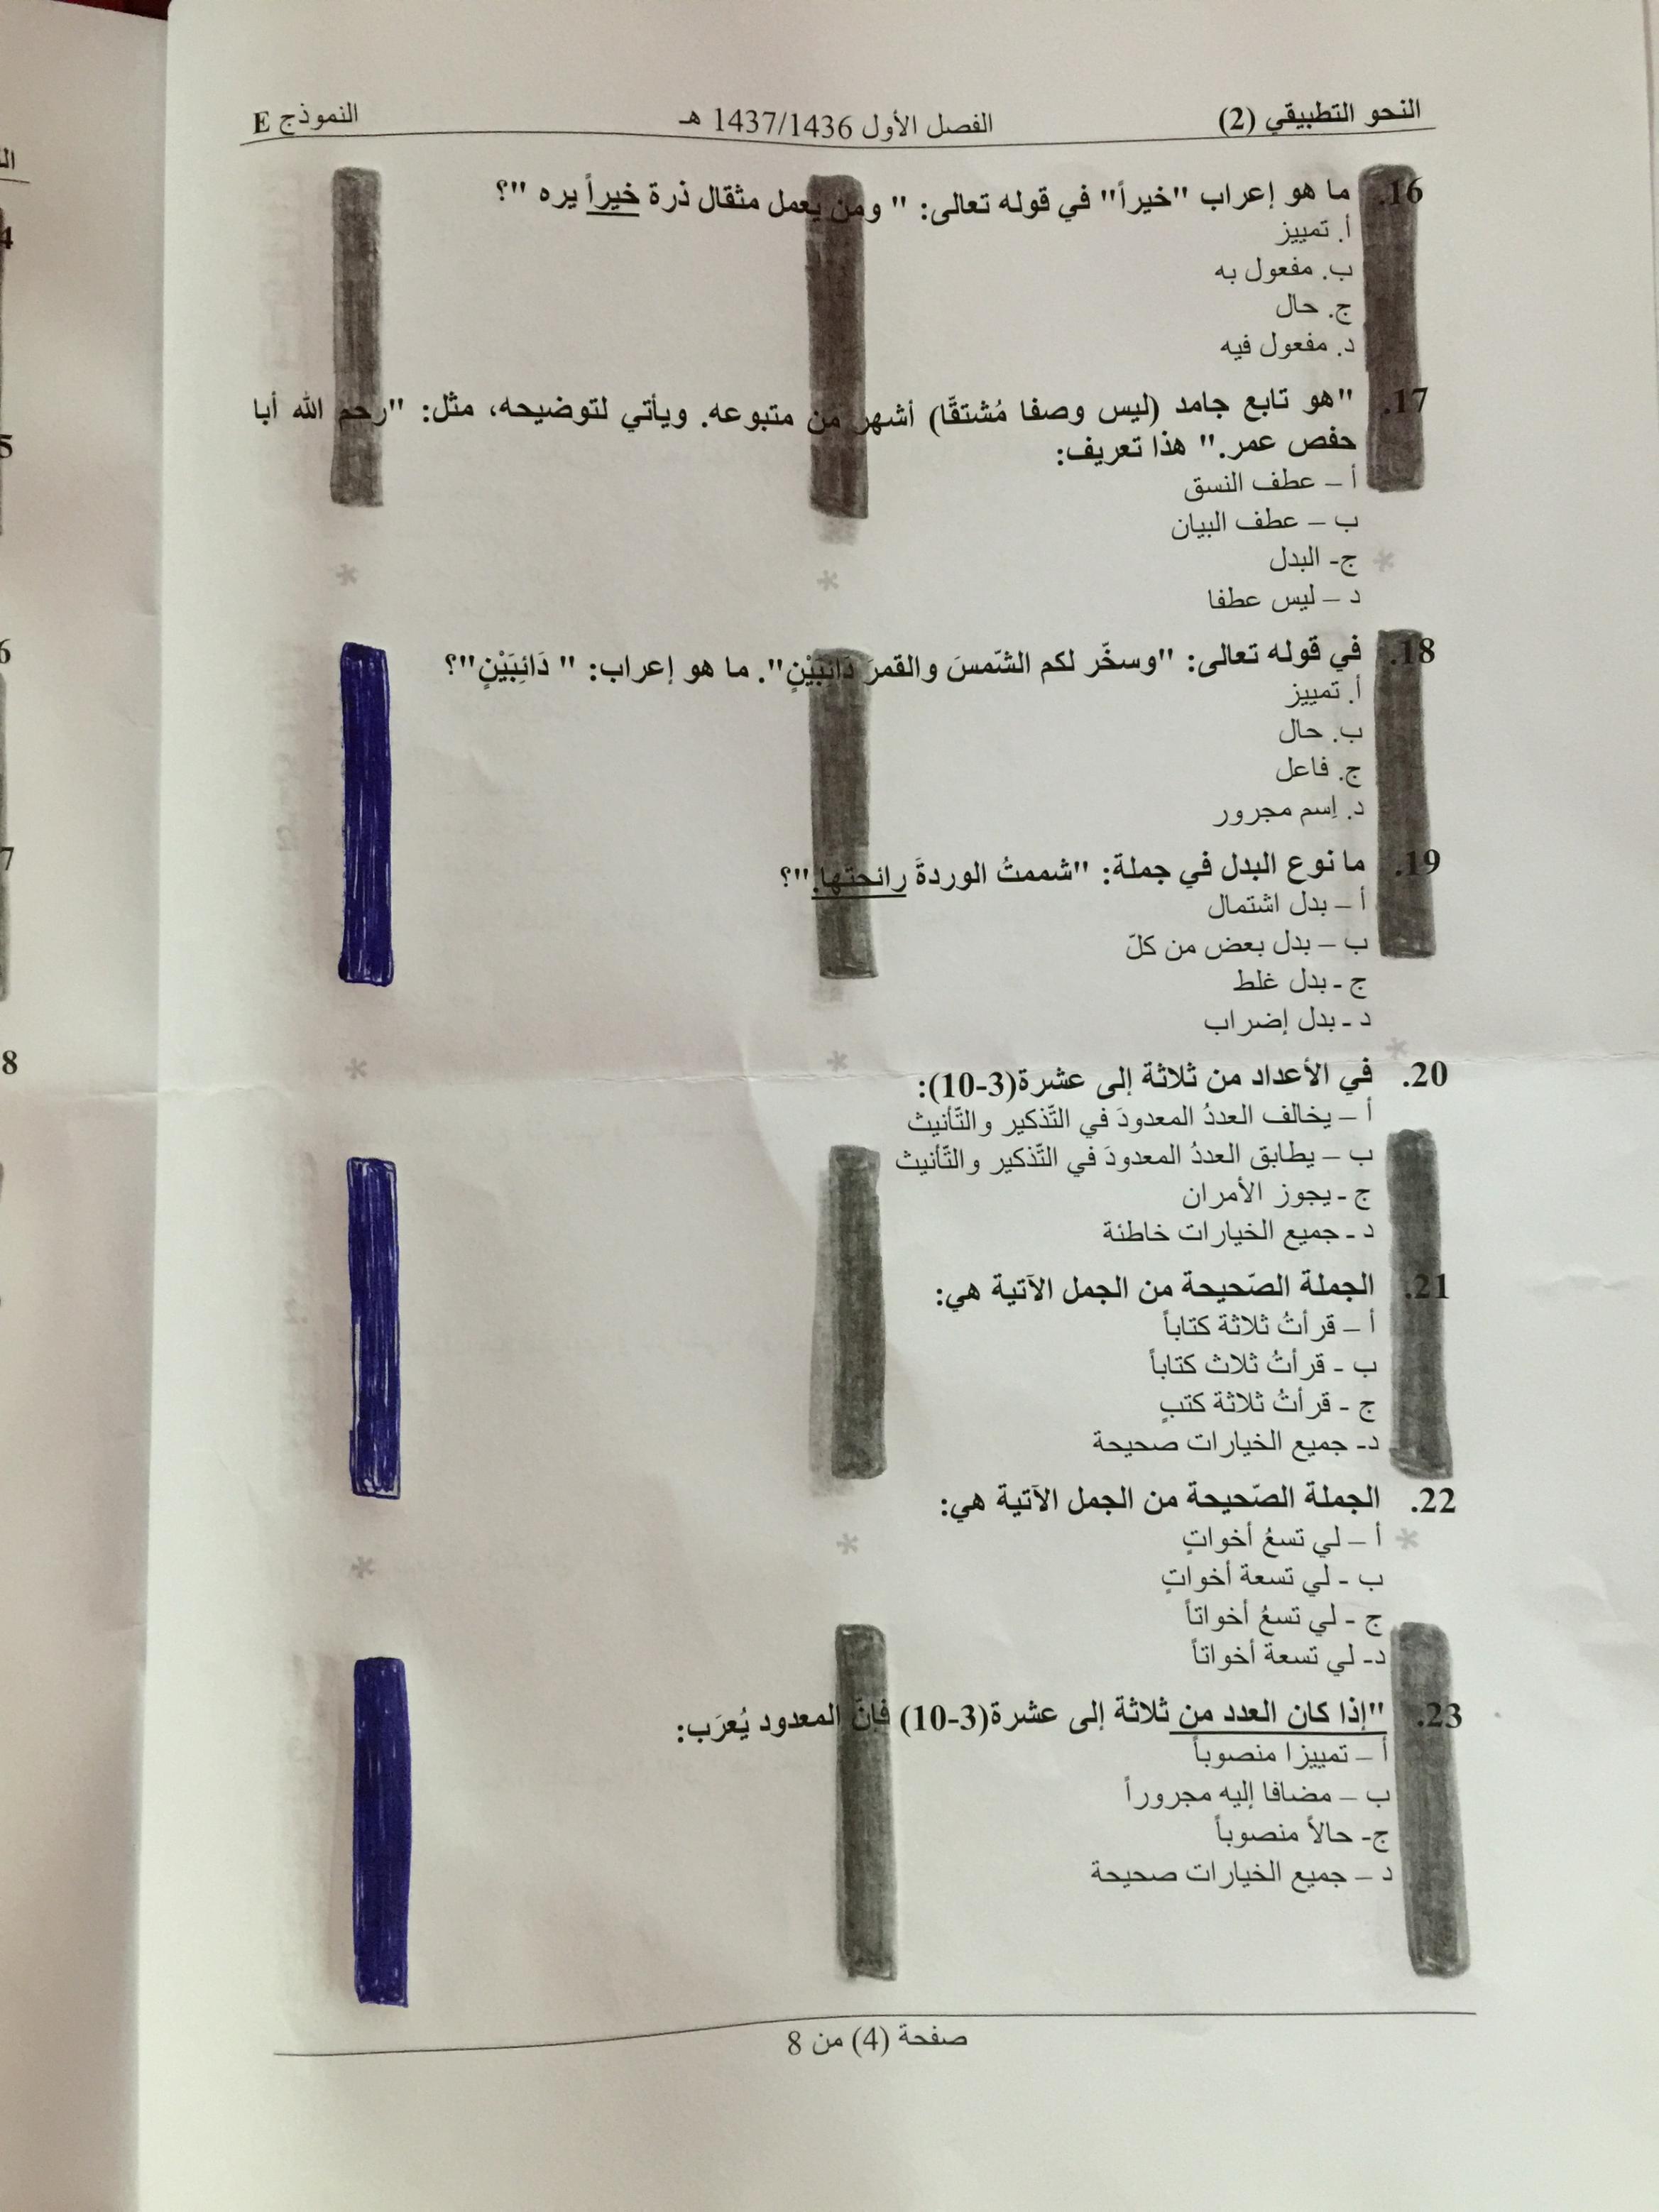 النحو التطبيقي (2) الفصل الأول 1437/1436 هـ النموذج E
16. ما هو إعراب "خيراً" في قوله تعالى: " ومن يعمل مثقال ذرة خيراً يره "؟
أ. تمييز
ب. مفعول به
ج. حال
د. مفعول فيه
17. "هو تابع جامد (ليس وصفا مُشتقًّا) أشهر من متبوعه. ويأتي لتوضيحه، مثل: "رحم الله أبا
حفص عمر." هذا تعريف:
أ – عطف النسق
ب – عطف البيان
ج- البدل
د – ليس عطفا
18. في قوله تعالى: "وسخّر لكم الشّمسَ والقمر دَائِبَيْنِ". ما هو إعراب: " دَائِبَيْنِ"؟
أ. تمييز
ب. حال
ج. فاعل
د. إسم مجرور
19. ما نوع البدل في جملة: "شممتُ الوردةَ رائحتها."؟
أ – بدل اشتمال
ب – بدل بعض من كلّ
ج - بدل غلط
د - بدل إضراب
20. في الأعداد من ثلاثة إلى عشرة(3-10):
أ – يخالف العددُ المعدودَ في التّذكير والتّأنيث
ب – يطابق العددُ المعدودَ في التّذكير والتّأنيث
ج - يجوز الأمران
د - جميع الخيارات خاطئة
21. الجملة الصّحيحة من الجمل الآتية هي:
أ – قرأتُ ثلاثة كتاباً
ب - قرأتُ ثلاث كتاباً
ج - قرأتُ ثلاثة كتبٍ
د- جميع الخيارات صحيحة
22. الجملة الصّحيحة من الجمل الآتية هي:
أ – لي تسعُ أخواتٍ
ب - لي تسعة أخواتٍ
ج - لي تسعُ أخواتاً
د- لي تسعة أخواتاً
23. "إذا كان العدد من ثلاثة إلى عشرة(3-10) فإنّ المعدود يُعرَب:
أ – تمييزا منصوباً
ب – مضافا إليه مجروراً
ج- حالاً منصوباً
د – جميع الخيارات صحيحة
صفحة (4) من 8
4
5
6
7
8